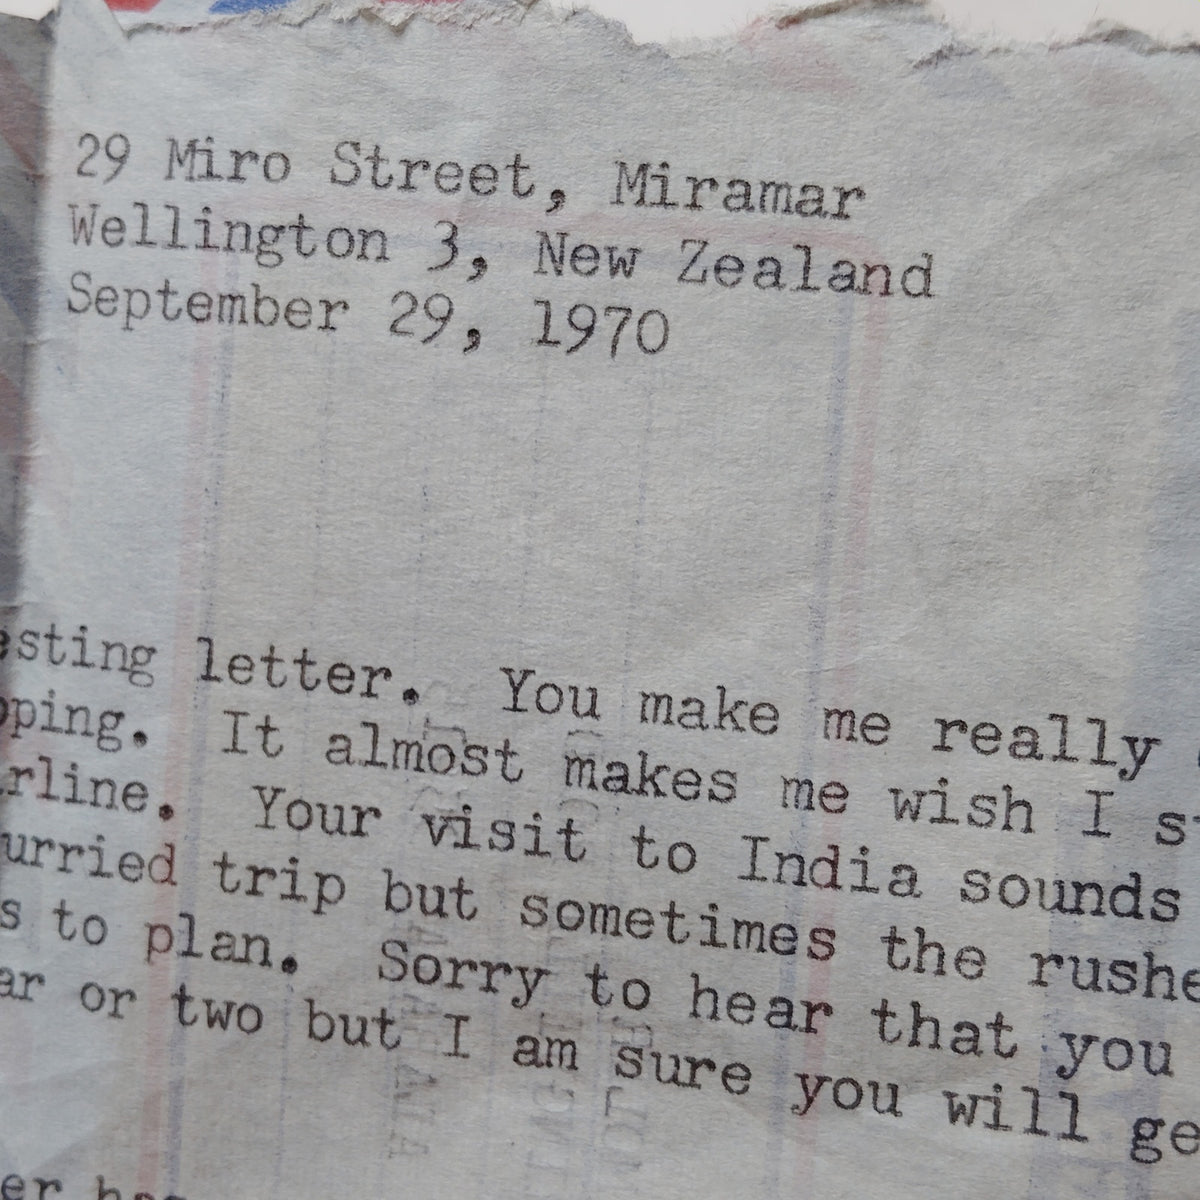 29 Miro Street, Miramar
Wellington 3, New Zealand
September 29, 1970
esting letter. You make me really
pping. It almost makes me wish I s
rline. Your visit to India sounds
urried trip but sometimes the rushe
s to plan. Sorry to hear that you
ar or two but I am sure you will ge
er